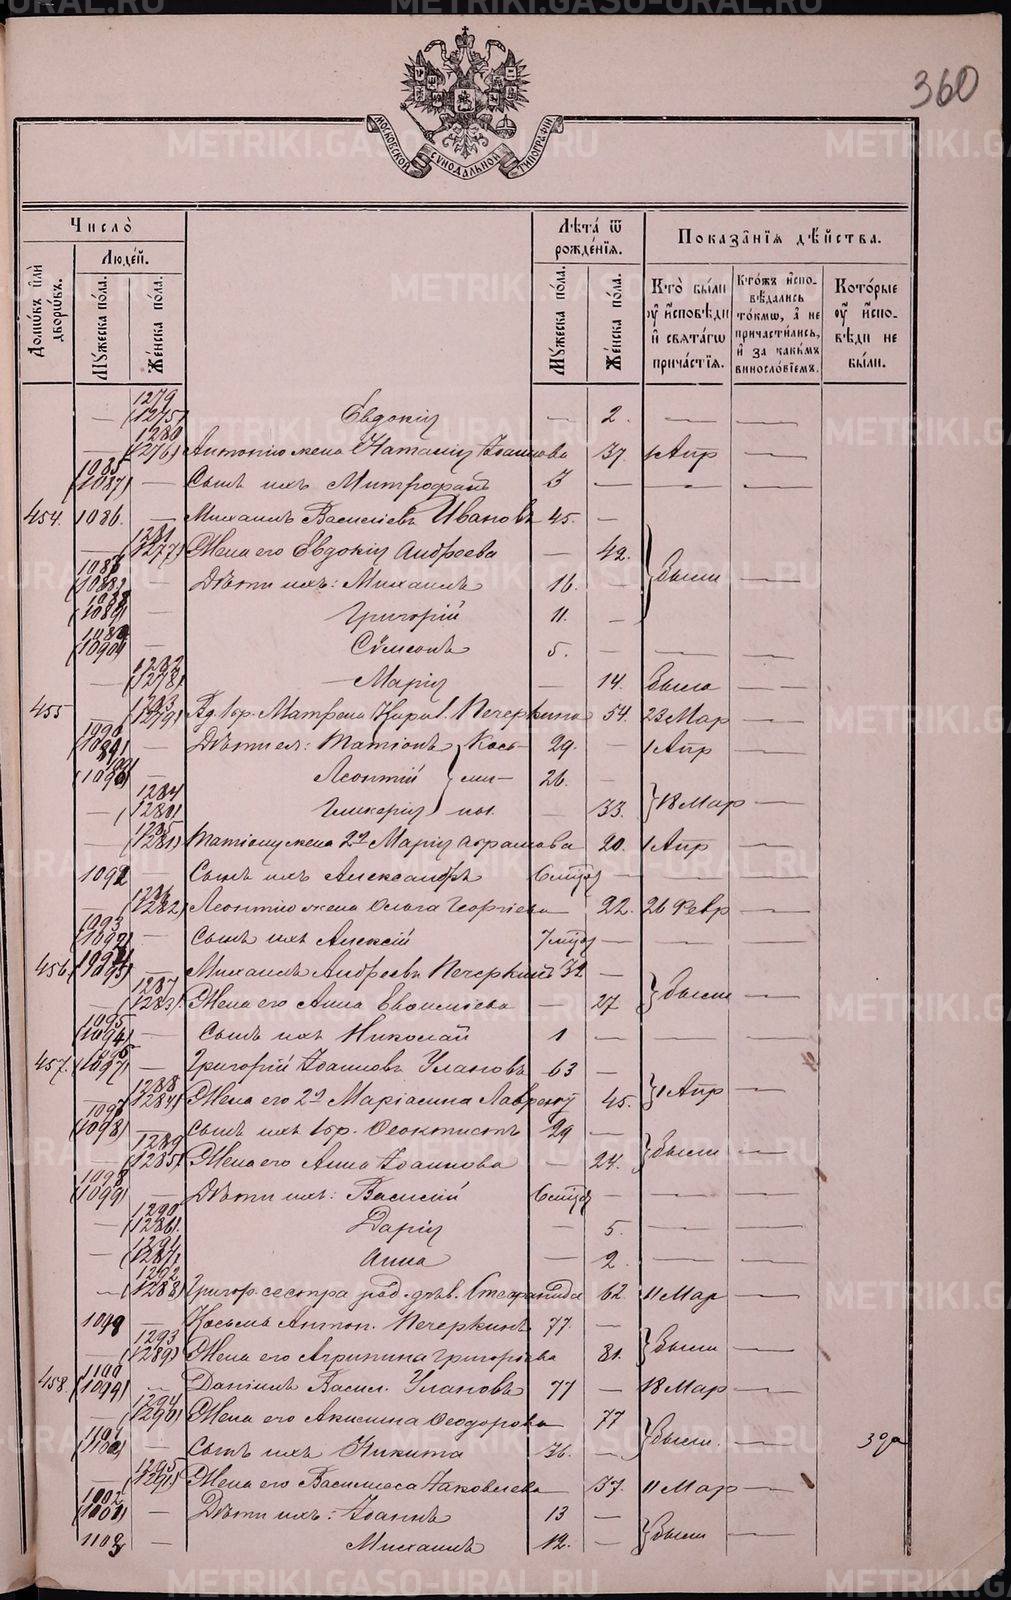 METRIKI.GASO-URAL.RU
360
МОСКОВСКОЙ СѴНОДАЛЬНОЙ ТИПОГРАФІИ
Число̀
Лѣта ѿ рожде́нїѧ.
Показа̑нїѧ дѣ́йства.
Домѡ́въ и҆лѝ дворѡ́въ.
Люде́й.
Мꙋ́жеска по́ла.
Же́нска по́ла.
Мꙋ́жеска по́ла.
Же́нска по́ла.
Кто̀ бы́ли ᲂу҆ и҆сповѣди и҆ свѧта́гѡ прича́стїѧ.
Кто́жъ и҆сповѣ́дались то́кмѡ, а҆ не причасти́лись, и҆ за каки́мъ винословїемъ.
Кото́рые ᲂу҆ и҆сповѣди не бы́ли.
1279 (1275) Евдокія — 2. — —
1280 (1276) Антонію жена Наталія Іоаннова 37. 1 Апр —
1085 (1087) — Сынъ ихъ Митрофанъ 3 — — —
454. 1086. — Михаилъ Василіевъ Ивановъ 45. —
1281 (1277) Жена его Евдокія Андреева — 42. } были —
— Дѣти ихъ: Михаилъ 16. —
(1089) — Григорій 11. —
(1090) — Сѵмеонъ 5. — — —
1282 (1278) — Марія — 14. была —
455 — 1283 (1279) Вд. бр. Матрона Кирил. Печеркина 54. 23 Мар —
1090 (1091) — Дѣти ея: Матіонъ } Кось- 29. — 1 Апр —
— Леонтій } ми- 26. —
1284 (1280) Гликерія } ны. — 33. } 18 Мар —
1285 (1281) жена 2я Марія Абрамова 20. 1 Апр —
1092 — Сынъ ихъ Александръ 6 мцъ — — —
1286 (1282) Леонтію жена Ольга Георгіева 22. 26 Февр —
1093 (1092) — Сынъ ихъ Алексій 7 мцъ — — —
456. 1094 (1093) — Михаилъ Андреевъ Печеркинъ 32 —
1287 (1283) Жена его Анна Евѳиміева — 27. } были —
1095 (1094) — Сынъ ихъ Николай 1 — — —
457. 1096 (1097) — Григорій Іоанновъ Улановъ 63 —
1288 (1284) Жена его 2я Маріамна 45. } 1 Апр —
1097 (1098) — Сынъ ихъ бр. Ѳеоктистъ 29 —
1289 (1285) Жена его Анна Іоаннова — 24. } были —
1098 (1099) — Дѣти ихъ: Василій 6 мцъ — — —
1290 (1286) Дарія — 5. — —
1291 (1287) Анна — 2. — —
1292 (1288) Григор. сестра род. дѣв. Стефанида 62 11 Мар —
1099 Косьма Антон. Печеркинъ 77. —
1293 (1289) Жена его Агрипина Григоріева 81. } были —
458. 1100 — Даніилъ Васил. Улановъ 77 — 18 Мар —
1294 (1290) Жена его Акилина Ѳеодорова 77
1101 (1100) — Сынъ ихъ Никита 36. — } были. —
1295 (1291) Жена его Василиса Іаковлева 37. 11 Мар —
— Дѣти ихъ: Іоаннъ 13 —
1103 — Михаилъ 12. — } были —